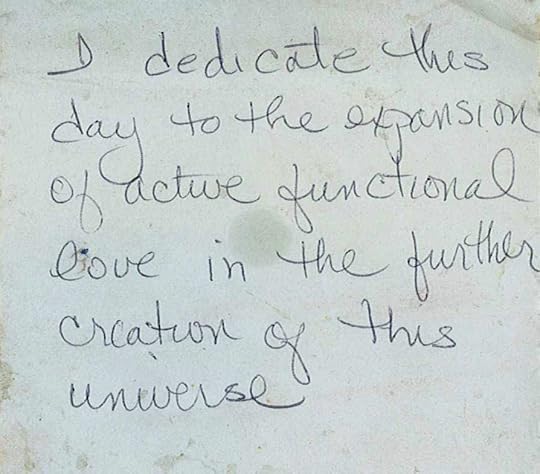 I dedicate this
day to the expansion
of active functional
love in the further
creation of this
universe